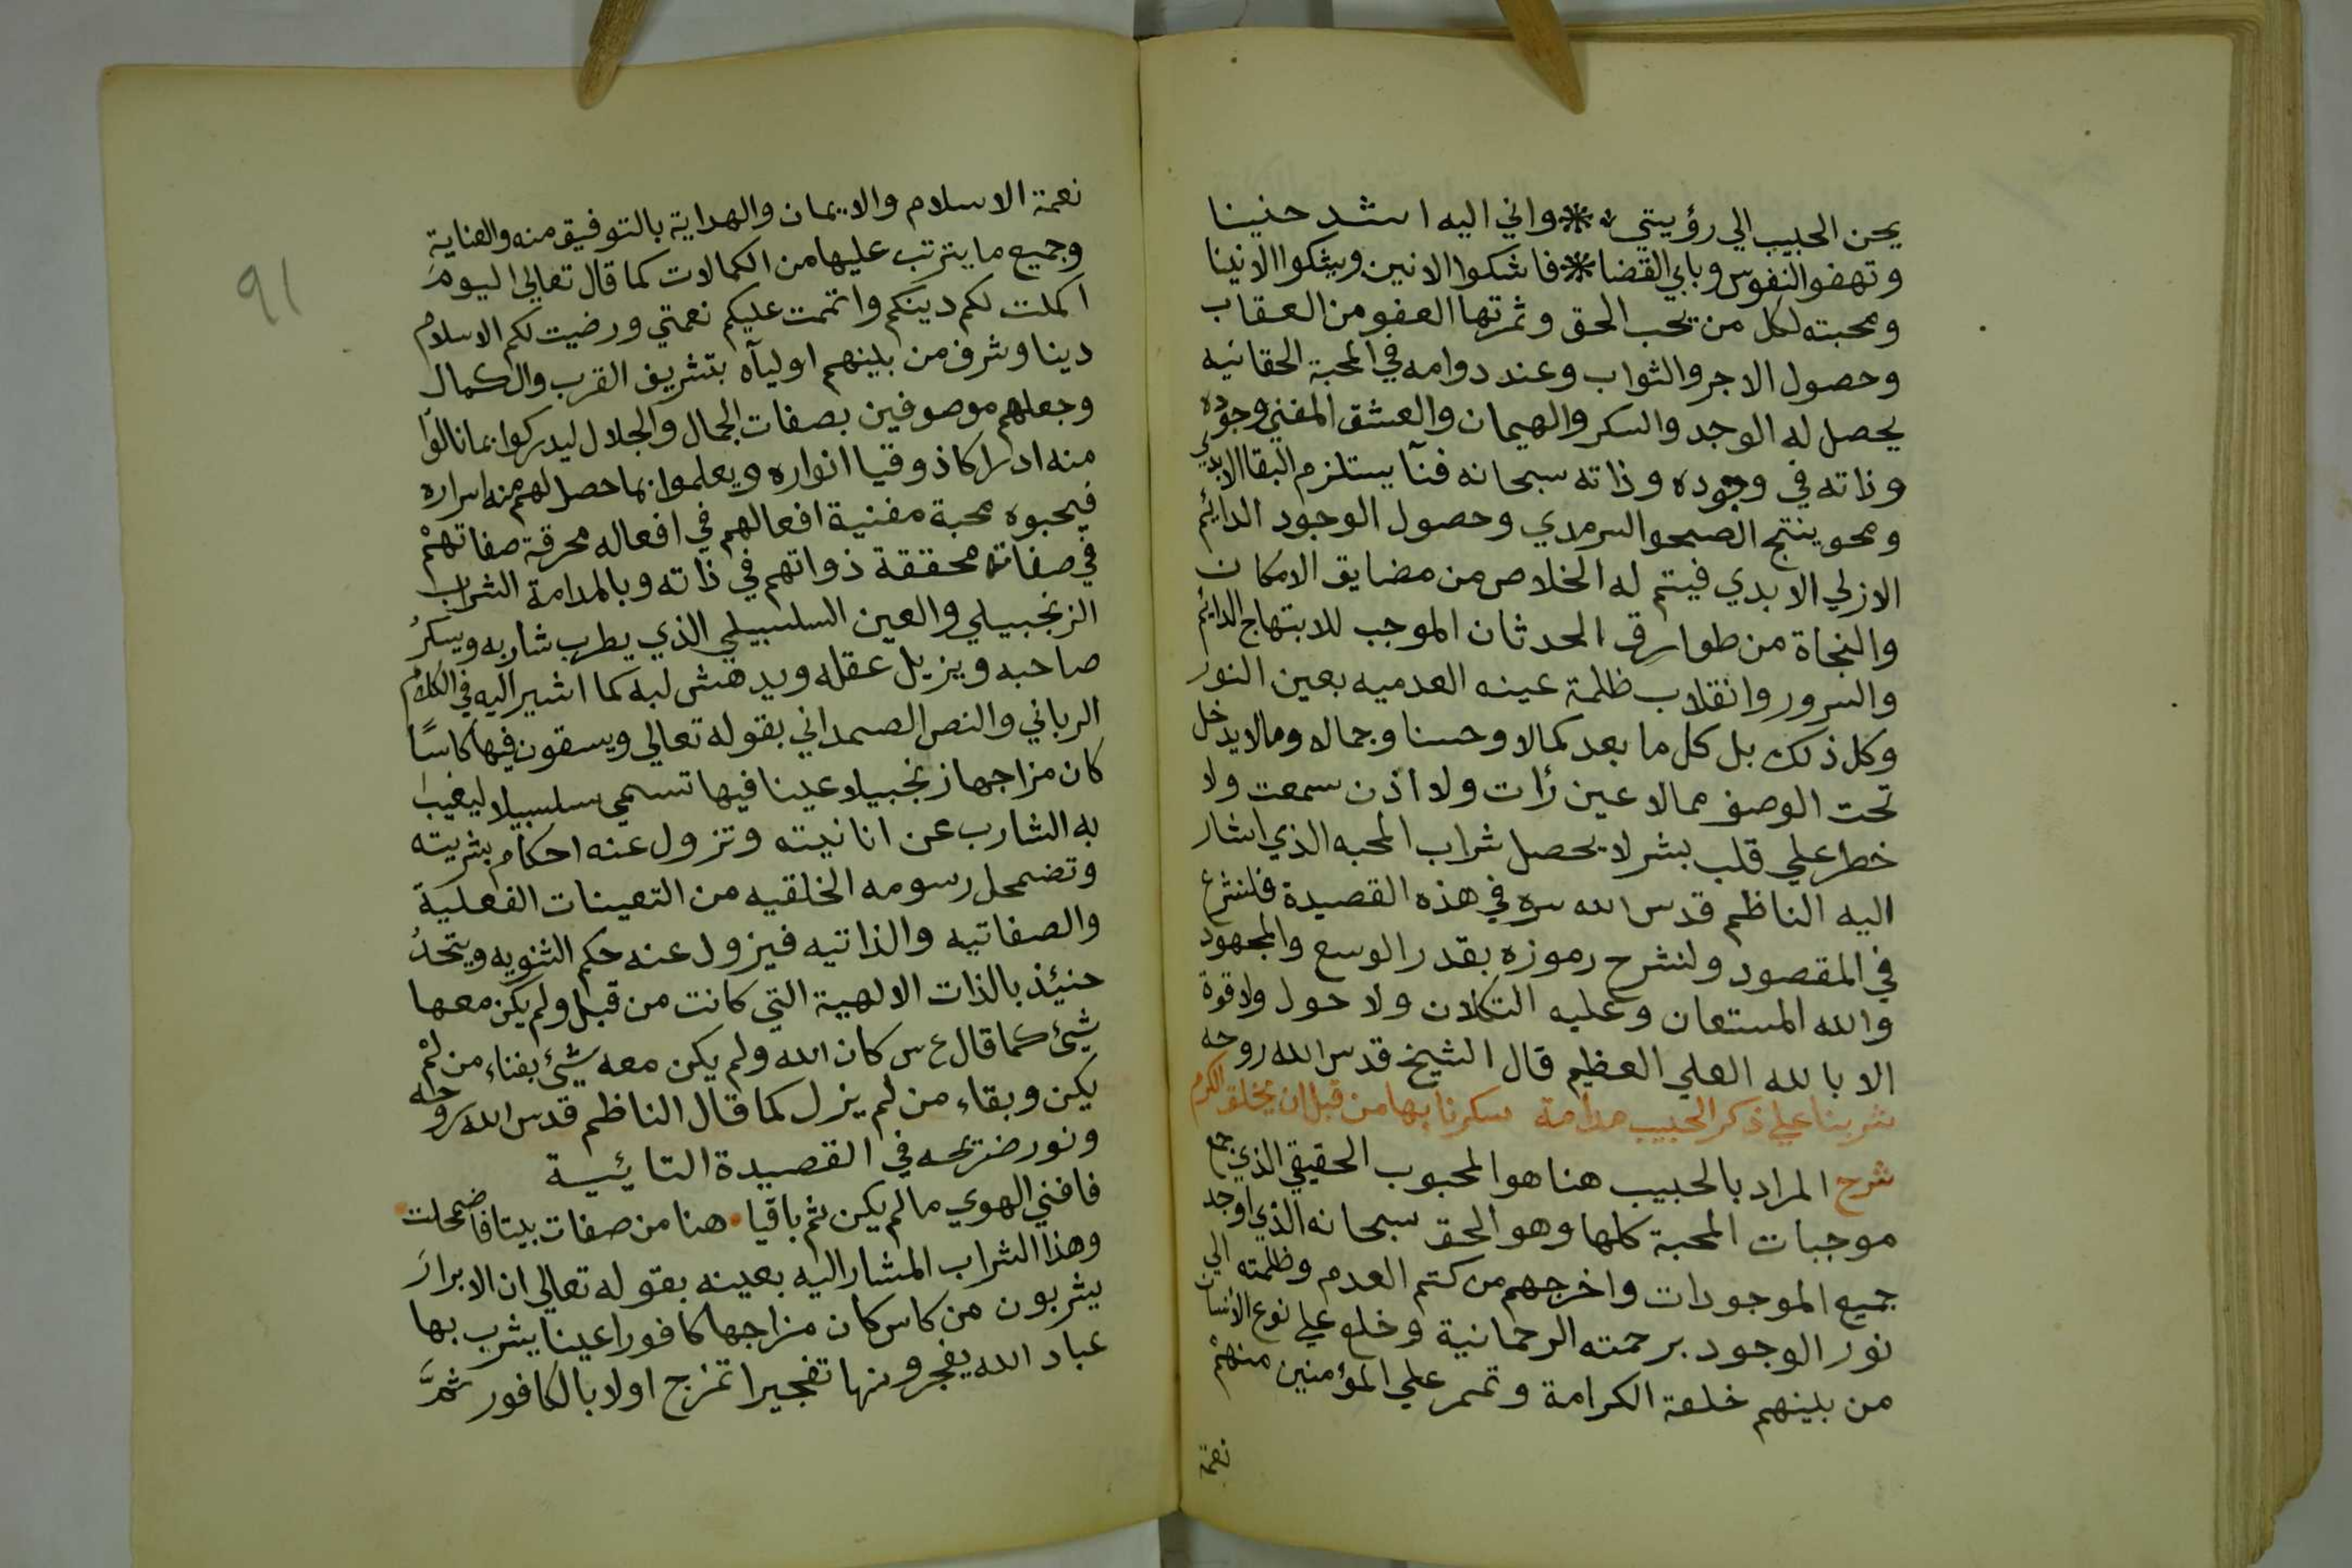 يحن الحبيب الي رؤيتي * واني اليه اشد حنينا
وتهفو النفوس ويابي القضا * فاشكوا الانين ويشكوا الانينا
ومحبته لكل من يحب الحق وثمرتها العفو من العقاب
وحصول الاجر والثواب وعند دوامه في المحبة الحقانيه
يحصل له الوجد والسكر والهيمان والعشق المفني وجوده
وذاته في وجوده وذاته سبحانه فنآ يستلزم البقا الابدي
ومحو ينتج الصحو السرمدي وحصول الوجود الدائم
الازلي الابدي فيتم له الخلاص من مضايق الامكان
والنجاة من طوارق الحدثان الموجب للابتهاج الدائم
والسرور وانقلاب ظلمة عينه العدميه بعين النور
وكل ذلك بل كل ما يعد كمالا وحسنا وجمالا ومالا يدخل
تحت الوصف ممالا عين رأت ولا اذن سمعت ولا
خطر علي قلب بشر لا يحصل شراب المحبه الذي اشار
اليه الناظم قدس الله سره في هذه القصيدة فلنشرع
في المقصود ولنشرح رموزه بقدر الوسع والمجهود
والله المستعان وعليه التكلان ولا حول ولا قوة
الا بالله العلي العظيم قال الشيخ قدس الله روحه
شربنا علي ذكر الحبيب مدامة سكرنا بها من قبل ان يخلق الكرم
شرح المراد بالحبيب هنا هو المحبوب الحقيقي الذي جمع
موجبات المحبة كلها وهو الحق سبحانه الذي اوجد
جميع الموجودات واخرجهم من كتم العدم وظلمته الي
نور الوجود برحمته الرحمانية وخلع علي نوع الانسان
من بينهم خلعة الكرامة وتمم علي المؤمنين منهم
نعمة
91
نعمة الاسلام والايمان والهداية بالتوفيق منه والعناية
وجميع ما يترتب عليها من الكمالات كما قال تعالي اليوم
اكملت لكم دينكم واتممت عليكم نعمتي ورضيت لكم الاسلام
دينا وشرف من بينهم اوليآه بتشريف القرب والكمال
وجعلهم موصوفين بصفات الجمال والجلال ليدركوا بما نالوا
منه ادراكا ذوقيا انواره ويعلموا بما حصل لهم منه اسراره
فيحبوه محبة مفنية افعالهم في افعاله محرقة صفاتهم
في صفاته محققة ذواتهم في ذاته وبالمدامة الشراب
الزنجبيلي والعين السلسبيلي الذي يطرب شاربه ويسكر
صاحبه ويزيل عقله ويدهش لبه كما اشير اليه في الكلام
الرباني والنص الصمداني بقوله تعالي ويسقون فيها كاسًا
كان مزاجها زنجبيلا عينا فيها تسمي سلسبيلا ليغيب
به الشارب عن انانيته وتزول عنه احكام بشريته
وتضمحل رسومه الخلقيه من التعينات الفعلية
والصفاتيه والذاتيه فيزول عنه حكم الثنويه ويتحد
حنئيذ بالذات الالهية التي كانت من قبل ولم يكن معها
شيئ كما قال ع س كان الله ولم يكن معه شيئ بفناء من لم
يكن وبقاء من لم يزل كما قال الناظم قدس الله روحه
ونور ضريحه في القصيدة التائيسة
فافني الهوي مالم يكن ثم باقيا هنا من صفات بيتا فاضمحلت
وهذا الشراب المشار اليه بعينه بقوله تعالي ان الابرار
يشربون من كاس كان مزاجها كافورا عينا يشرب بها
عباد الله يفجرونها تفجيرا تمزج اولا بالكافور ثمَّ